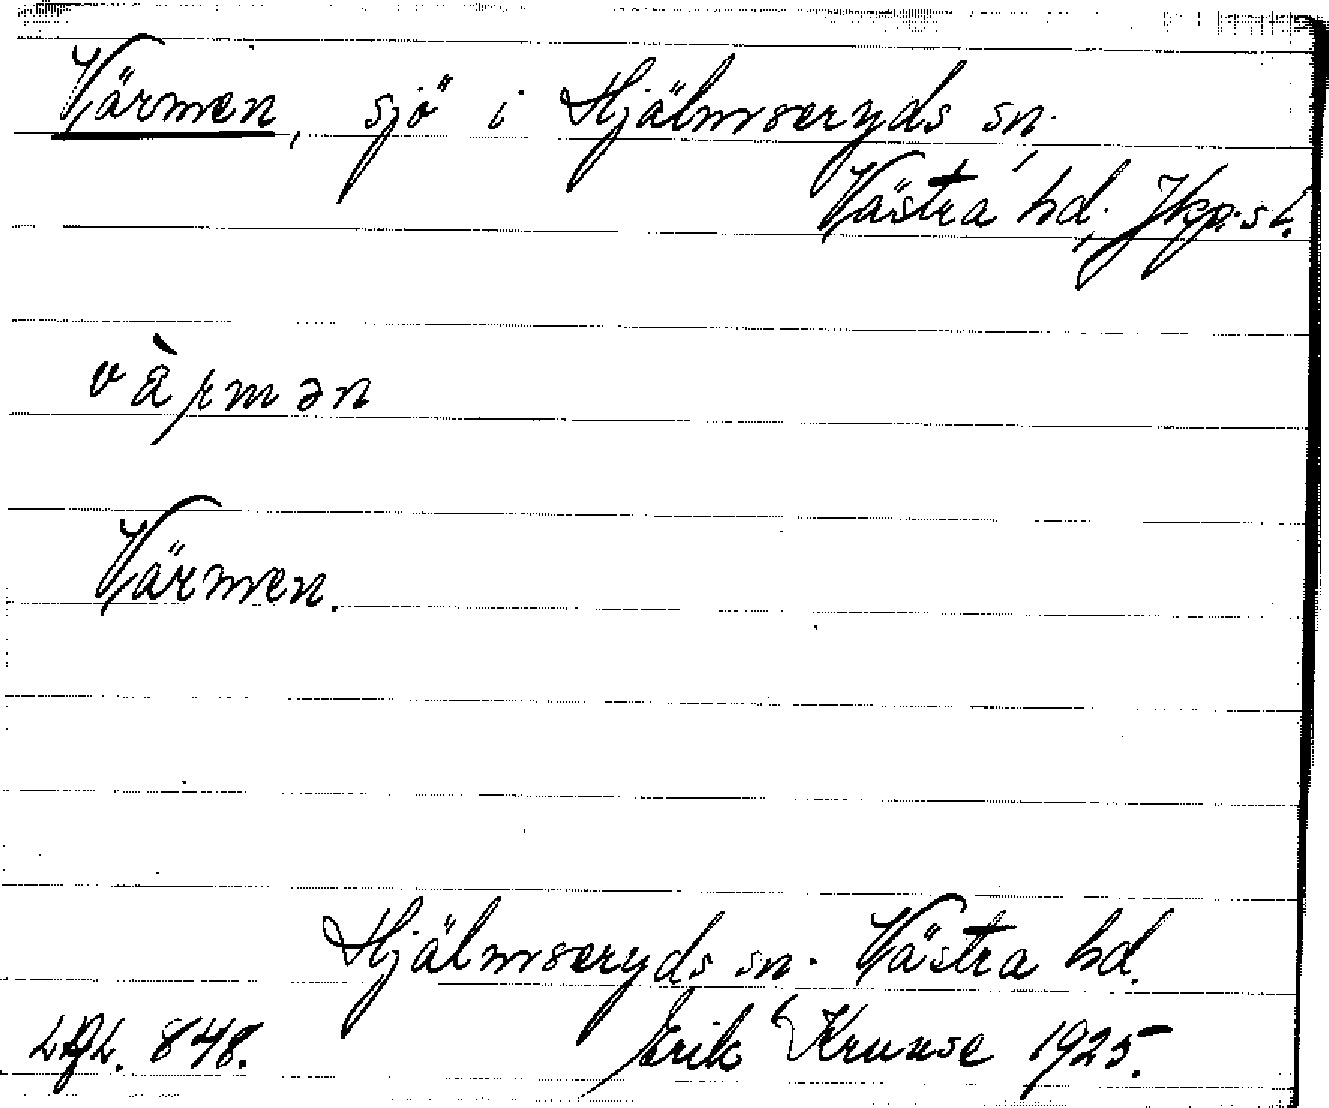 Värmen, sjö i Hjälmseryds sn.
Västra hd. Jkp.s l.
vàrmən
Värmen.
Hjälmseryds sn. Västra hd.
848. Erik Kruuse 1925.